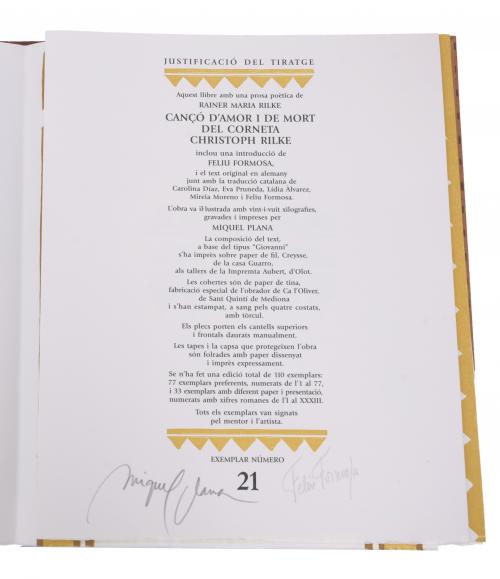 JUSTIFICACIÓ DEL TIRATGE
Aquest llibre amb una prosa poètica de
RAINER MARIA RILKE
CANÇÓ D'AMOR I DE MORT
DEL CORNETA
CHRISTOPH RILKE
inclou una introducció de
FELIU FORMOSA,
i el text original en alemany
junt amb la traducció catalana de
Carolina Díaz, Eva Pruneda, Lídia Álvarez,
Mireia Moreno i Feliu Formosa.
L'obra va il·lustrada amb vint-i-vuit xilografies,
gravades i impreses per
MIQUEL PLANA
La composició del text,
a base del tipus "Giovanni"
s'ha imprès sobre paper de fil, Creysse,
de la casa Guarro,
als tallers de la Impremta Aubert, d'Olot.
Les cobertes són de paper de tina,
fabricació especial de l'obrador de Ca l'Oliver,
de Sant Quintí de Mediona
i s'han estampat, a sang pels quatre costats,
amb tòrcul.
Els plecs porten els cantells superiors
i frontals daurats manualment.
Les tapes i la capsa que protegeixen l'obra
són folrades amb paper dissenyat
i imprès expressament.
Se n'ha fet una edició total de 110 exemplars:
77 exemplars preferents, numerats de l'1 al 77,
i 33 exemplars amb diferent paper i presentació,
numerats amb xifres romanes de l'I al XXXIII.
Tots els exemplars van signats
pel mentor i l'artista.
EXEMPLAR NÚMERO
21
Miquel Plana
Feliu Formosa